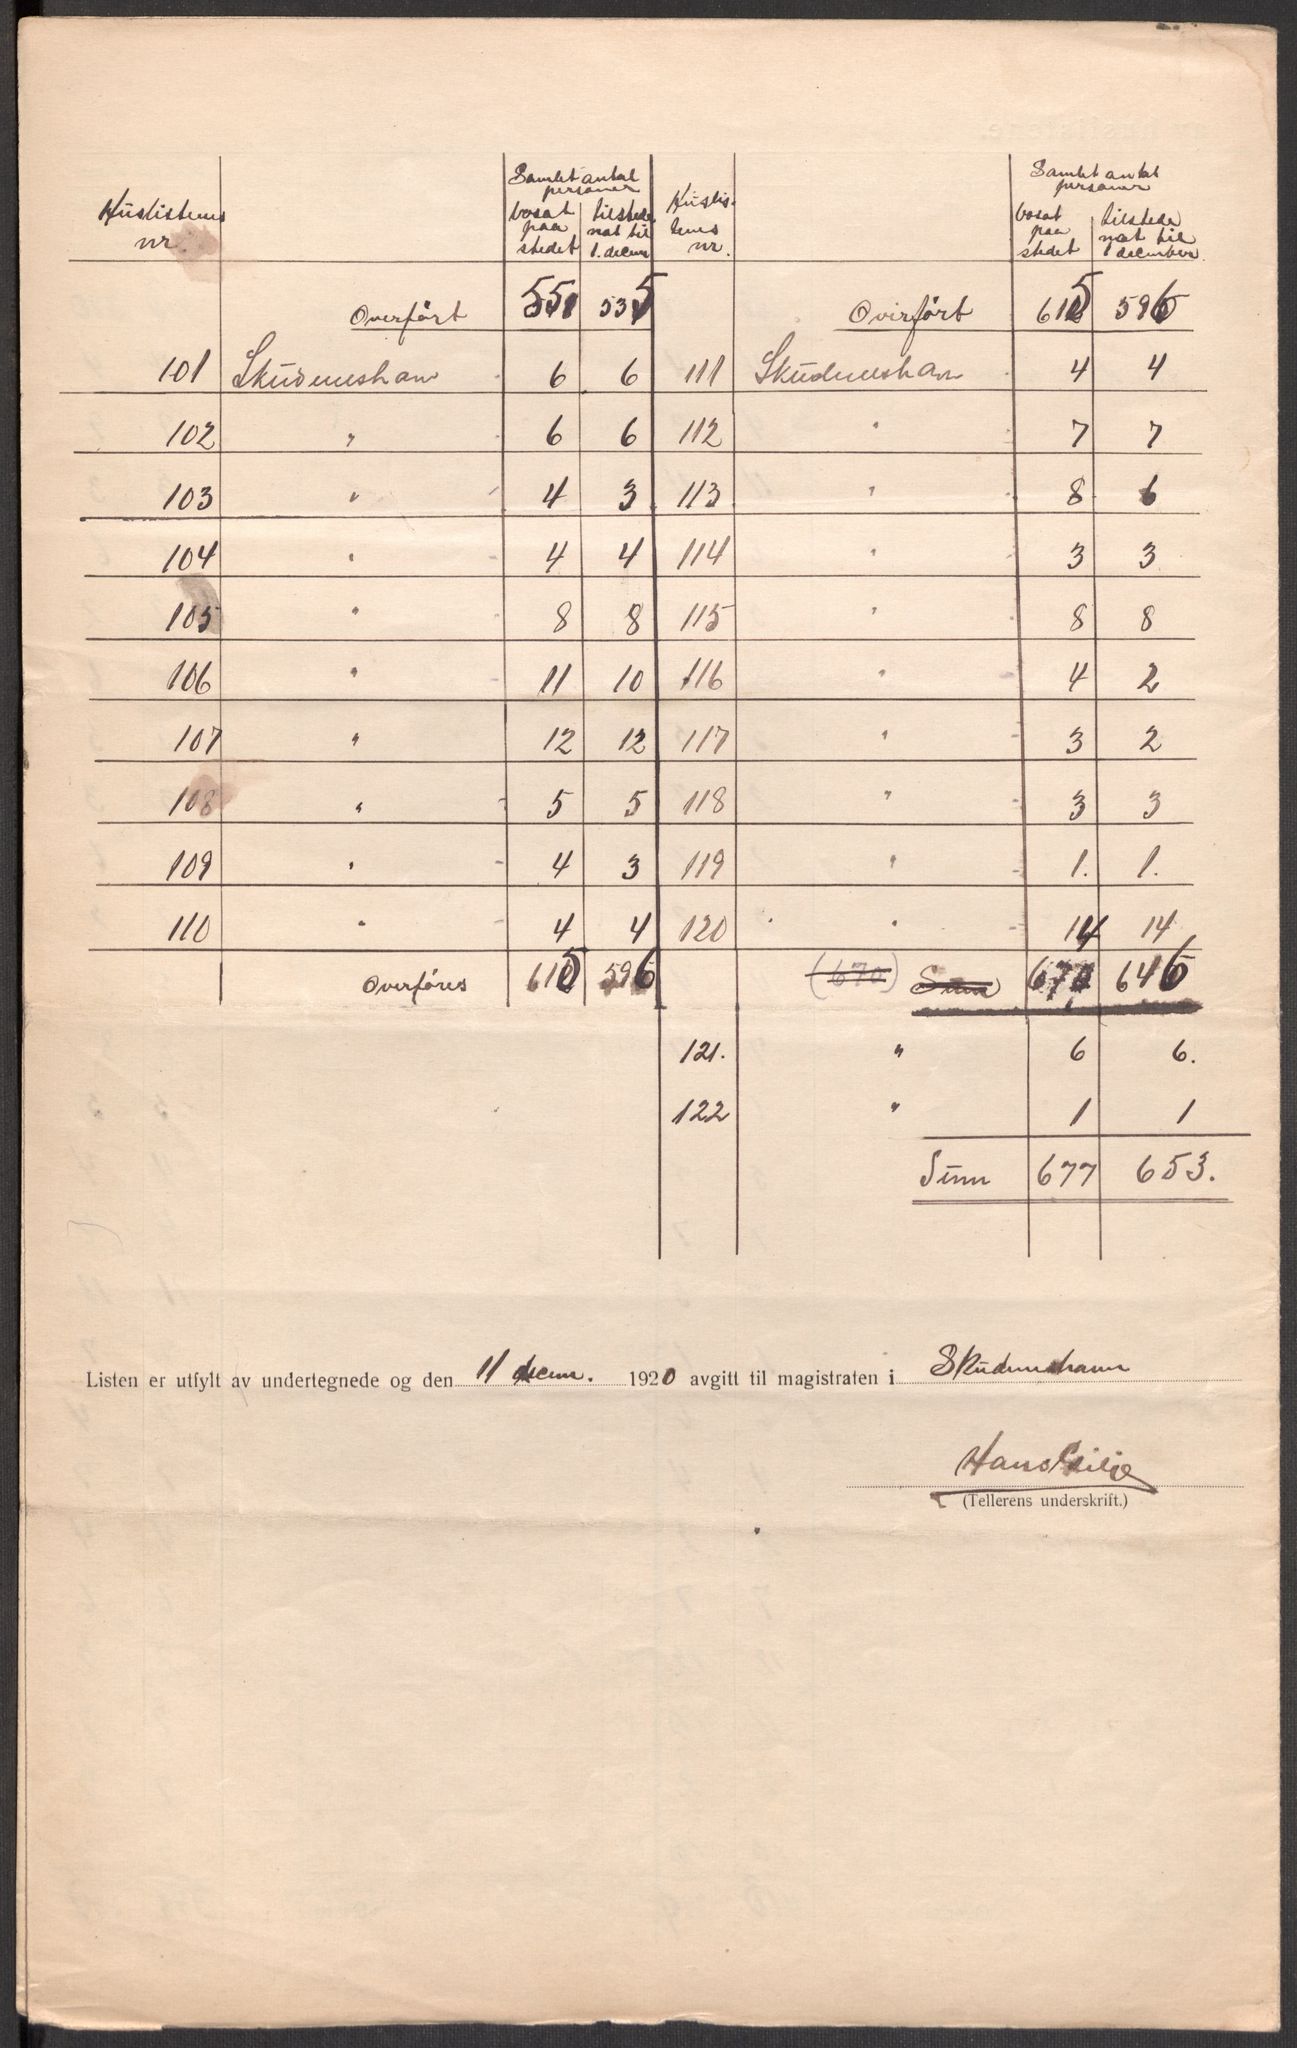 Huslistens nr. | | Samlet antal personer bosat paa stedet | tilstede nat til 1. decem | Huslistens nr. | | Samlet antal personer bosat paa stedet | tilstede nat til 1 december
Overført 551 535 | Overført 615 596
101 Skudeneshavn 6 6 | 111 Skudeneshavn 4 4
102 " 6 6 | 112 " 7 7
103 " 4 3 | 113 " 8 6
104 " 4 4 | 114 " 3 3
105 " 8 8 | 115 " 8 8
106 " 11 10 | 116 " 4 2
107 " 12 12 | 117 " 3 2
108 " 5 5 | 118 " 3 3
109 " 4 3 | 119 " 1. 1.
110 " 4 4 | 120 " 14 14
Overføres 615 596 | (670) Sum 670 646
121. " 6 6.
122 " 1 1
Sum 677 653.
Listen er utfylt av undertegnede og den 11 decem. 1920 avgitt til magistraten i Skudeneshavn
Hans
(Tellerens underskrift.)